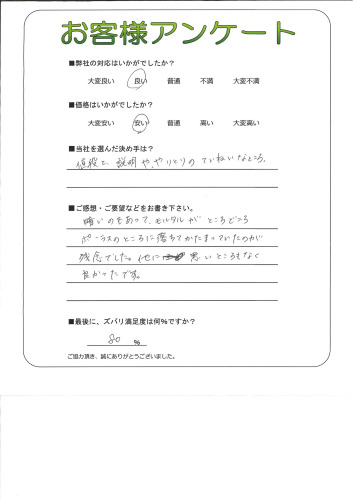 お客様アンケート
■弊社の対応はいかがでしたか?
大変良い 良い 普通 不満 大変不満
■価格はいかがでしたか?
大変安い 安い 普通 高い 大変高い
■当社を選んだ決め手は?
値段と、説明や、やりとりのていねいなところ。
■ご感想・ご要望などをお書き下さい。
暗いのもあって、モルタルが ところどころ
ポーラスのところに落ちてかたまっていたのが
残念でした。他に 悪いところもなく
良かったです。
■最後に、ズバリ満足度は何%ですか?
80 %
ご協力頂き、誠にありがとうございました。